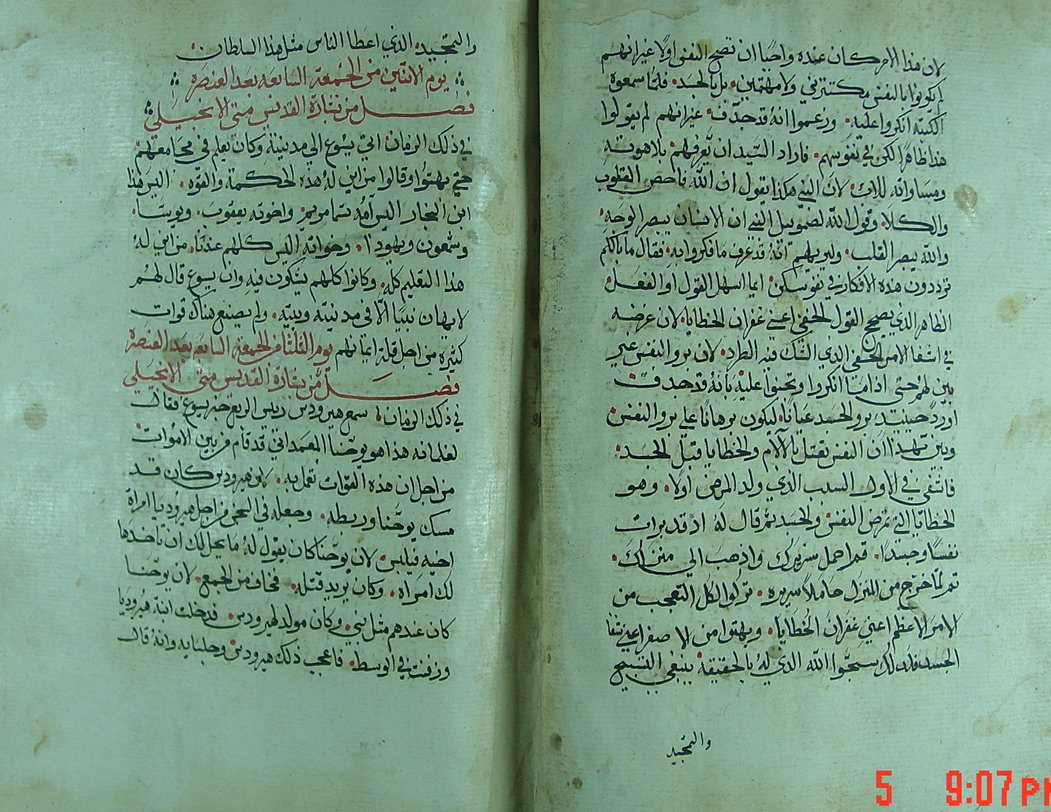 لان هذا الامر كان عنده واجبًا ان تصح النفس اولاً غير انهم
لم يكونوا بالنفس يكترثون ولا مهتمين بل بالجسد فلما سمعوه
الكتبة انكروا عليه وزعموا انه قد جدّف غير انهم لم يقولوا
هذا ظاهرًا لكن في نفوسهم فاراد السيد ان يعرفهم بلاهوته
ومساواته للاب لان النبي هكذا يقول ان الله فاحص القلوب
والكلا وقول الله لصموييل النبي ان الانسان يبصر الوجه
والله يبصر القلب وليريهم انه قد عرف ما فكروا به فقال ما بالكم
ترددون هذه الافكار في نفوسكن ايما اسهل القول او الفعل
الظاهر الذي يصحح القول الخفي اعني غفران الخطايا لان غرضه
في اشفا الامر الخفي الذي الشك فيه الزاد لان برو النفس غير
بين لهم حتى اذا ما انكروا وتجنوا عليه بانه قد جدف
اورد حينيذ برو الجسد عيانًا ليكون برهانًا على برو النفس
وبين بهذا ان النفس تقتل بالالام والخطايا قبل الجسد
فانتفى في الاول السبب الذي ولد المرض اولا وهو
الخطايا التي تمرض النفس والجسد ثم قال له اذ قد برات
نفسًا وجسدًا قم احمل سريرك واذهب الى منزلك
ثم لما خرج من المنزل حاملاً سريره تركوا الكل التعجب من
الامر الاعظم اعني غفران الخطايا وبهتوا من الاصغر اعني شفا
الجسد فلذلك سبحوا الله الذي له بالحقيقة ينبغي التسبيح
والتمجيد
والتمجيد الذي اعطا الناس مثل هذا السلطان
يوم الاثنين من الجمعة السابعة بعد العنصرة
فصل من بشارة القديس متى الانجيلي
في ذلك الزمان اتى يسوع الى مدينته وكان يعلم في مجامعهم
حتى بهتوا وقالوا من اين له هذه الحكمة والقوه اليس هذا
ابن النجار اليس امه تسما مريم واخوته يعقوب ويوسا
وسمعون ويهودا وخواته اليس كلهم عندنا من اين له
هذا التعليم كله وكانوا كلهم يشكون فيه وان يسوع قال لهم
لا يهان نبيًا الا في مدينته وبيته ولم يصنع هناك قوات
كثيره من اجل قلة ايمانهم يوم الثلثا من الجمعة السابعة بعد العنصرة
فصل من بشارة القديس متى الانجيلي
في ذلك الزمان سمع هيرودس رييس الربع خبر يسوع فقال
لغلمانه هذا هو يوحنا المعمداني قد قام من بين الاموات
من اجل ان هذه القوات تعمل به لان هيرودس كان قد
مسك يوحنا وربطه وجعله في السجن من اجل هيروديا امراة
اخيه فيلبس لان يوحنا كان يقول له ما يحل لك ان تاخدها
لك امراه وكان يريد قتله فخاف من الجمع لان يوحنا
كان عندهم مثل نبي وكان مولد لهيرودس فدخلت ابنة هيروديا
وزفنت في الوسط فاعجب ذلك هيرودس وجلسايه وانه قال
5 9:07 PM